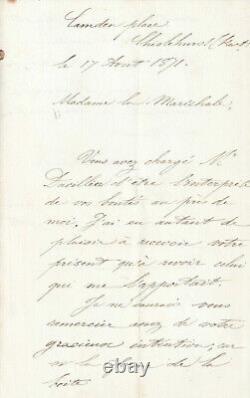 Camden place
Chislehurst (Kent)
le 17 Août 1871.
Madame la Maréchale,
Vous avez chargé Mr
d'être l'interprète
de vos bontés auprès de
moi. J'ai eu autant de
plaisir à recevoir votre
présent qu'à revoir celui
qui me l'apportait.
Je ne saurais vous
remercier assez de votre
gracieuse intention, car
la de la
boîte